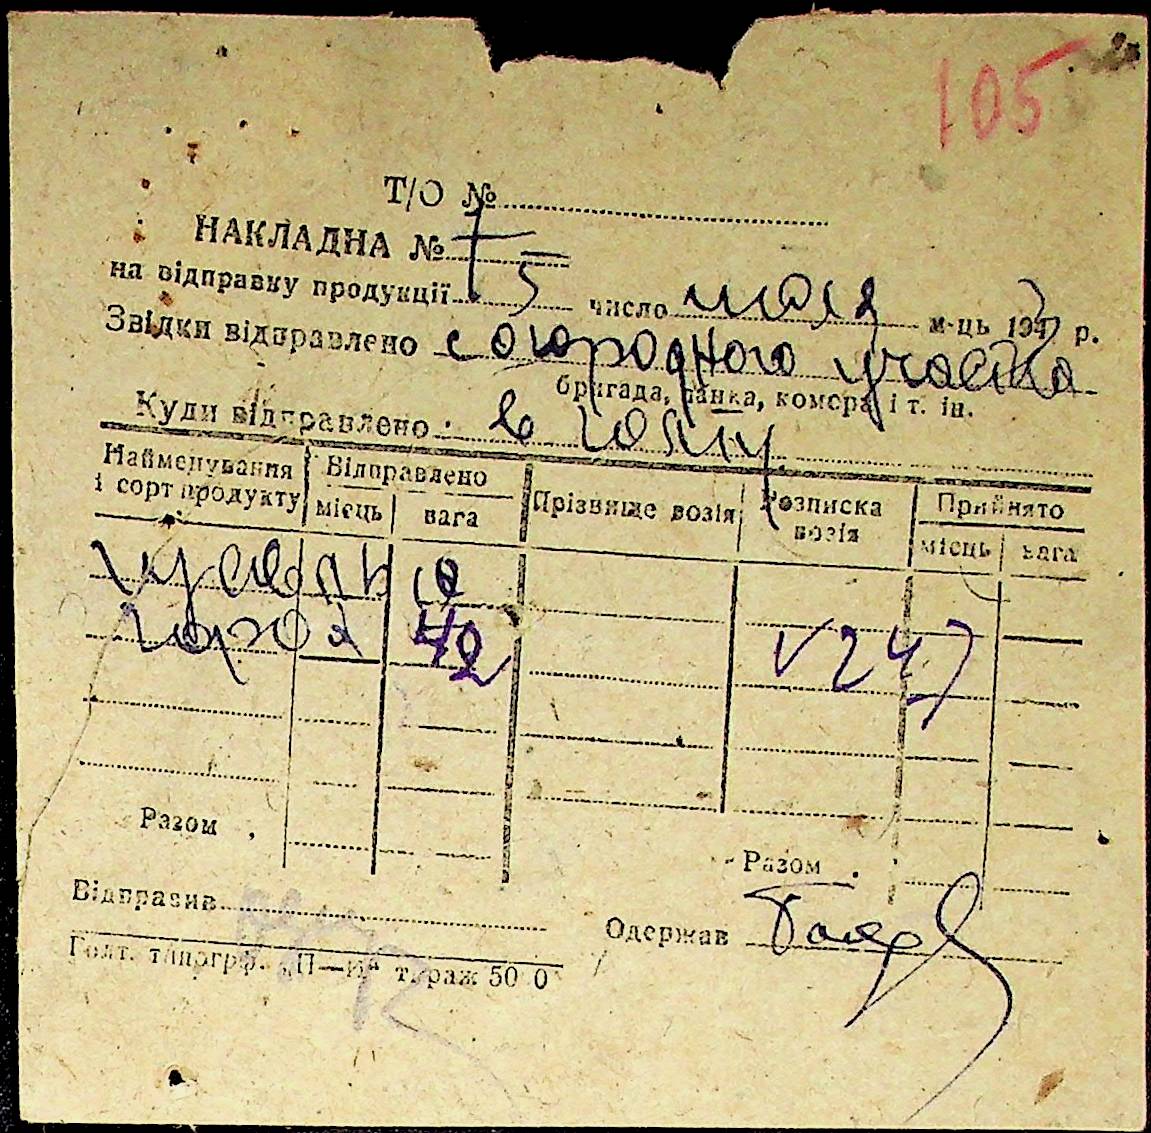 105
Т/О №
НАКЛАДНА №
на відправку продукції 5 число мая м-ць 194 р.
Звідки відправлено с огородного участка
бригада, ланка, комора і т. ін.
Куди відправлено в
Найменування і сорт продукту Відправлено місць вага Прізвище возія Розписка возія Прийнято місць вага
10
горох 42 247
Разом Разом
Відправив
Одержав
Голт. типогрф. „П—и“ тираж 50 0